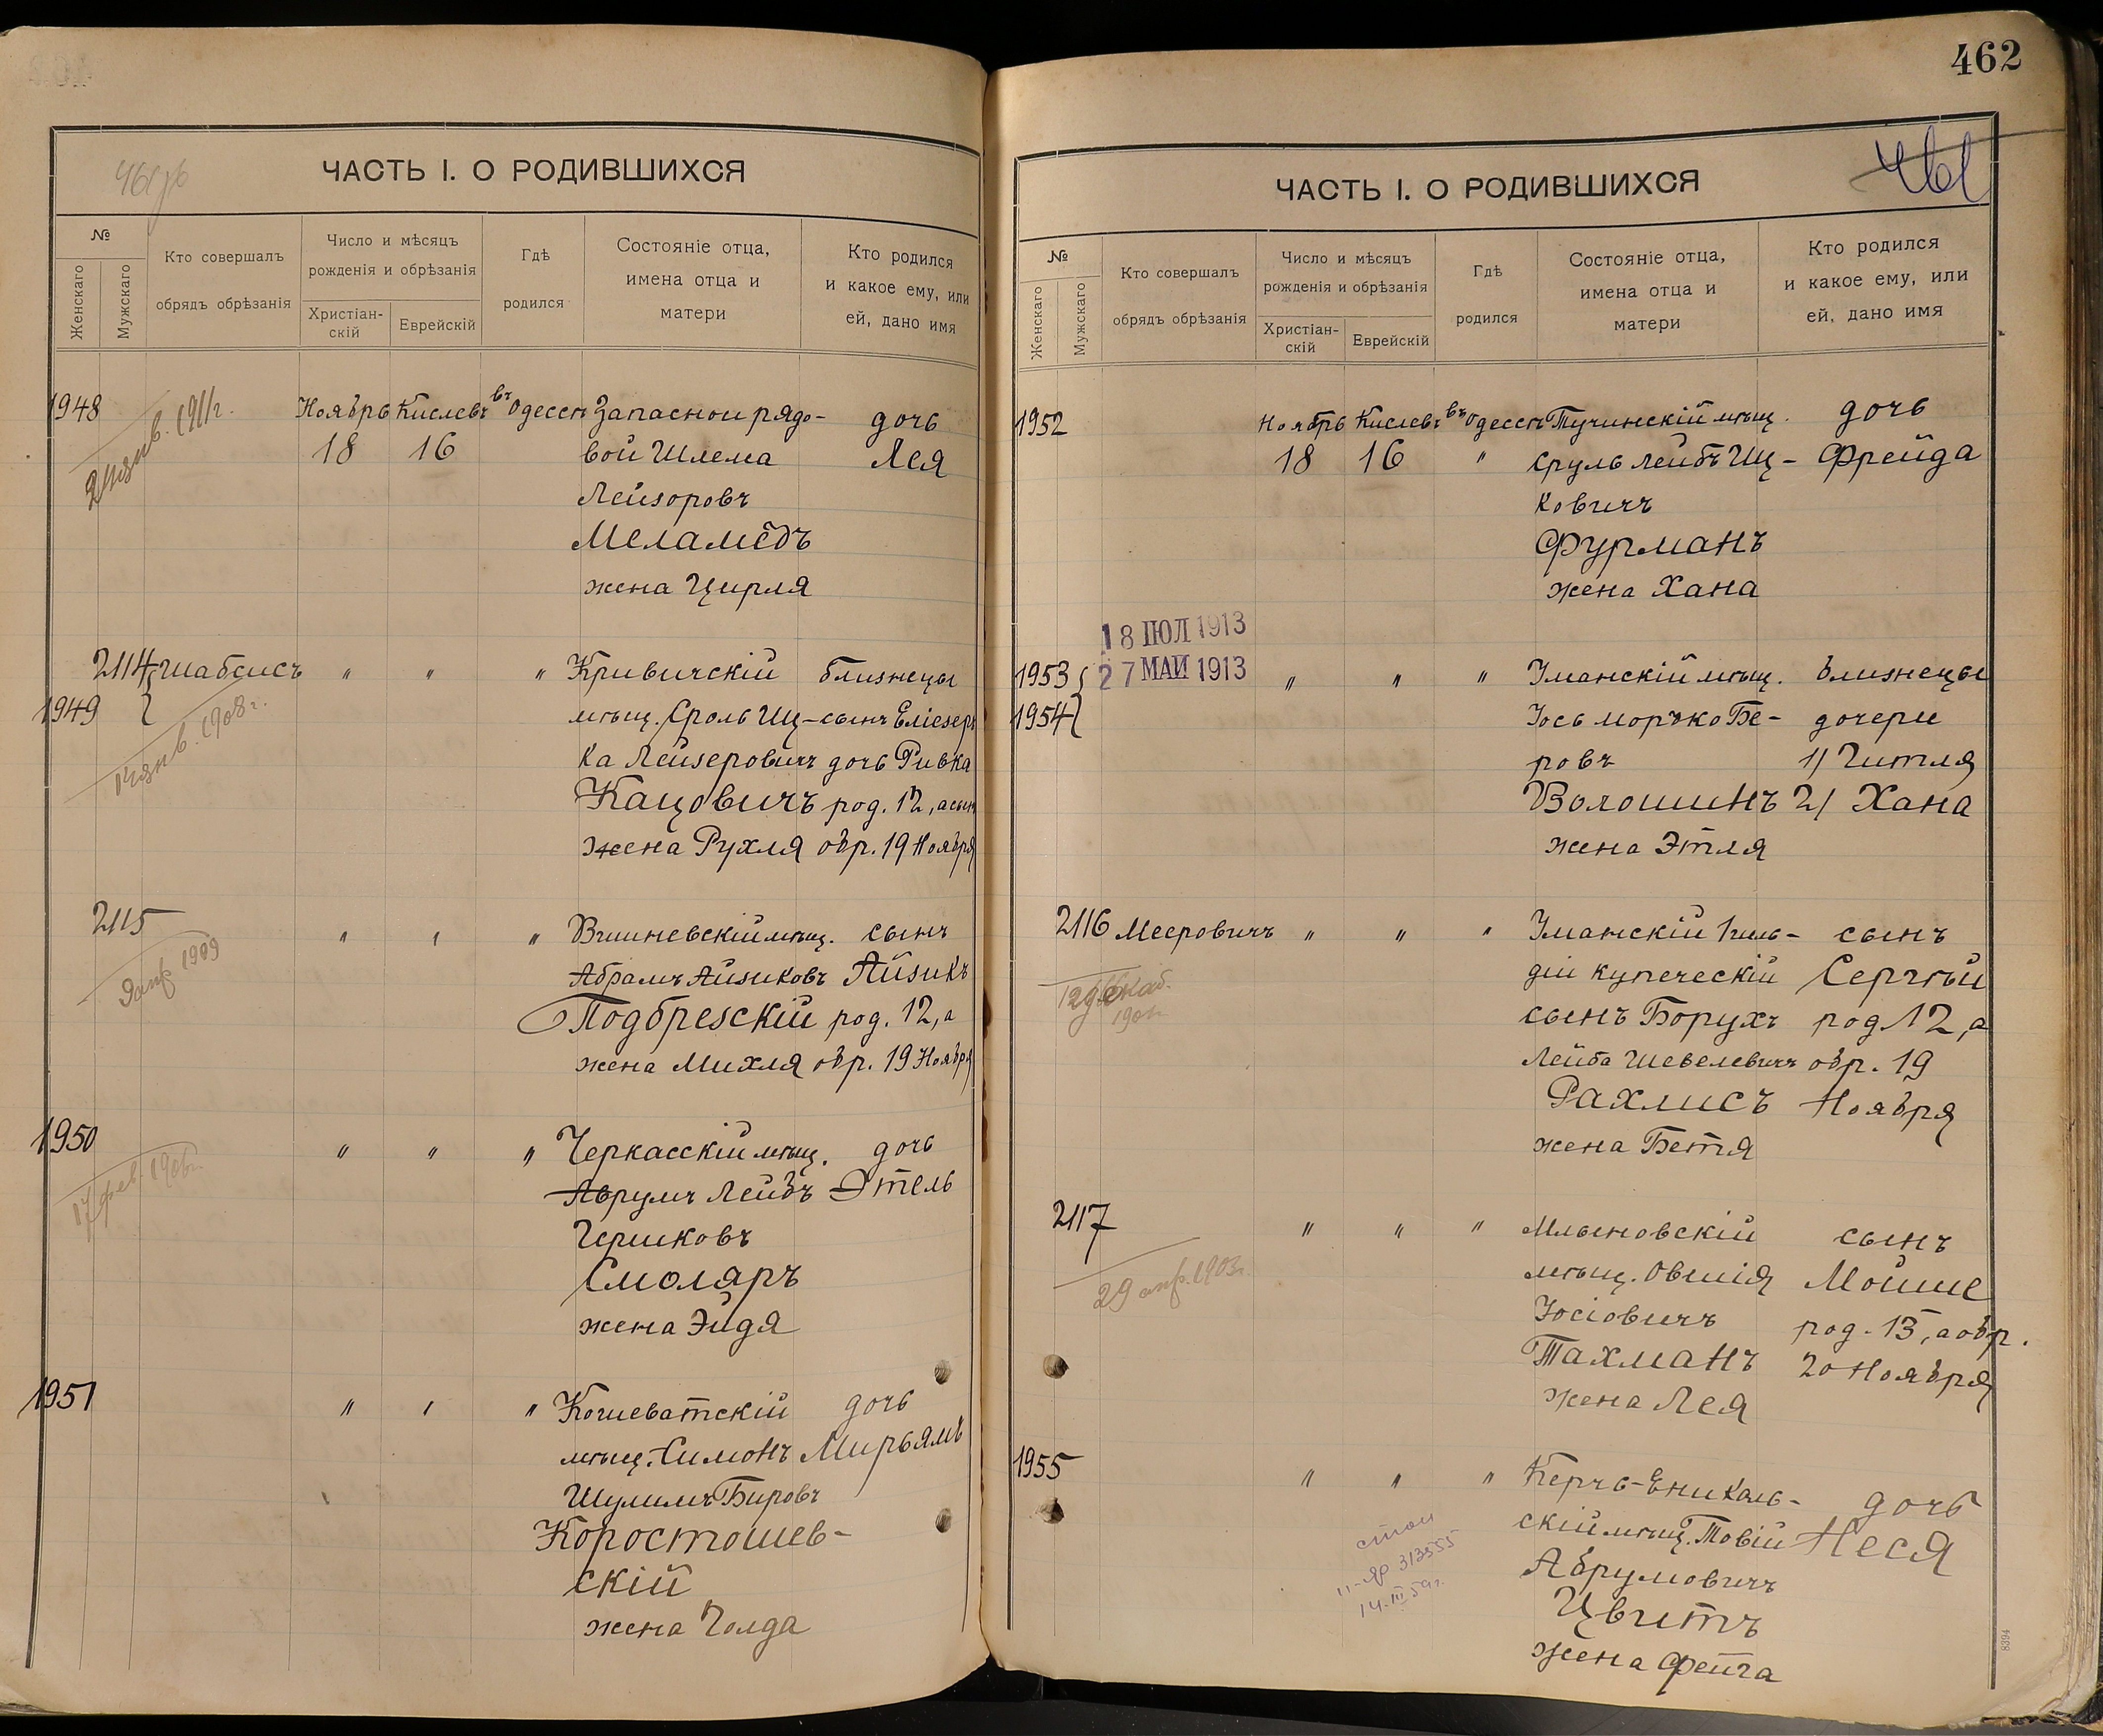 ЧАСТЬ I. О РОДИВШИХСЯ
№
Женскаго
Мужскаго
Кто совершалъ
обрядъ обрѣзанія
Число и мѣсяцъ
рожденія и обрѣзанія
Христіан-
скій
Еврейскій
Гдѣ
родился
Состояніе отца,
имена отца и
матери
Кто родился
и какое ему, или
ей, дано имя
1948 Ноябрь Кислевъ въ Одессѣ Запасной рядо- дочь
18 16 вой Шлема Лея
Лейзоровъ
Меламедъ
жена Цирля
2114 Шабсисъ " " " Кривичскій близнецы
1949 мѣщ. Сроль Иц- сынъ Еліезеръ
ка Лейзеровичъ дочь Ривка
14 янв. 1908 г.
Кацовичъ род. 12, а сынъ
жена Рухля обр. 19 Ноября
2115 " " " мѣщ. сынъ
9 апр 1909
Абрамъ Айзиковъ Айзикъ
Подбрезскій род. 12, а
жена Михля обр. 19 Ноября
1950 " " " Черкасскій мѣщ. дочь
Аврумъ Лейбъ Этель
Гершковъ
Смоляръ
жена Эйдя
1951 " " " Кошеватскій дочь
мѣщ. Симонъ Мирьямъ
Шулимъ Бировъ
Коростошев-
скій
жена Голда
462
461
ЧАСТЬ I. О РОДИВШИХСЯ
№
Женскаго
Мужскаго
Кто совершалъ
обрядъ обрѣзанія
Число и мѣсяцъ
рожденія и обрѣзанія
Христіан-
скій
Еврейскій
Гдѣ
родился
Состояніе отца,
имена отца и
матери
Кто родился
и какое ему, или
ей, дано имя
1952 Ноябрь Кислевъ въ Одессѣ Тучинскій мѣщ. дочь
18 16 " Сруль Лейбъ Иц- Фрейда
ковичъ
Фурманъ
жена Хана
18 ІЮЛ 1913
27 МАЙ 1913
1953 " " " Уманскій мѣщ. близнецы
1954 Іось Моръко Бе- дочери
ровъ 1) Гитля
Волошинъ 2) Хана
жена Этля
2116 Мееровичъ " " " Уманскій 1 гиль- сынъ
діи купеческій Сергѣй
сынъ Борухъ род 12, а
Лейба Шевелевичъ обр. 19
Рахлисъ Ноября
жена Бетя
2117 " " " Млыновскій сынъ
29 апр. 1903 г.
мѣщ. Овшія Мойше
Іосіовичъ род. 13, а обр.
Тахманъ 20 Ноября
жена Лея
1955 " " " Керчь-Еникаль- дочь
скій мѣщ. Товій Неся
Абрумовичъ
Цвитъ
жена Фейга
II-ЯР 313555
14.III 59 г.
8394